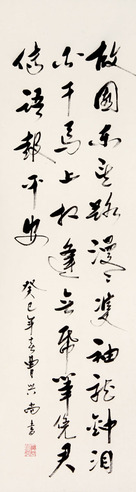 故園東望路漫漫雙袖龍鍾淚
不干馬上相逢無紙筆凭君
傳語報平安
癸巳年春曹興尚書